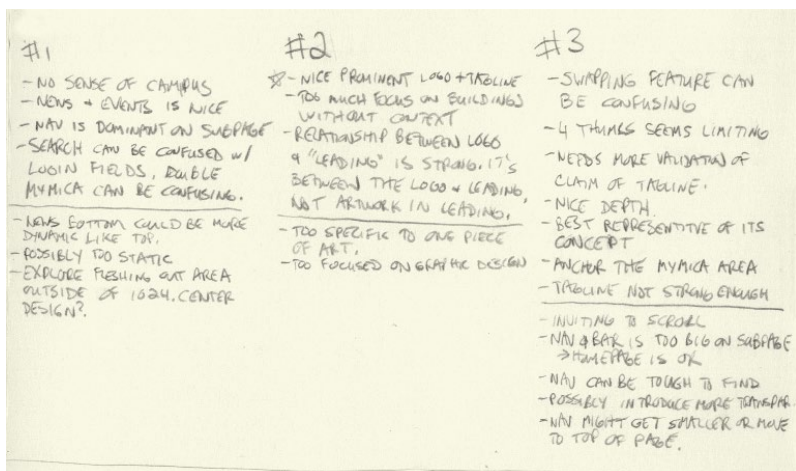 #1
- NO SENSE OF CAMPUS
- NEWS + EVENTS IS NICE
- NAV IS DOMINANT ON SUBPAGE
- SEARCH CAN BE CONFUSED W/
LOGIN FIELDS, DOUBLE
MYMICA CAN BE CONFUSING.
- NEWS BOTTOM COULD BE MORE
DYNAMIC LIKE TOP.
- POSSIBLY TOO STATIC
- EXPLORE FLESHING OUT AREA
OUTSIDE OF 1024. CENTER
DESIGN?
#2
☆ - NICE PROMINENT LOGO + TAGLINE
- TOO MUCH FOCUS ON BUILDINGS
WITHOUT CONTEXT
- RELATIONSHIP BETWEEN LOGO
& "LEADING" IS STRONG. IT'S
BETWEEN THE LOGO & LEADING,
NOT ARTWORK IN LEADING.
- TOO SPECIFIC TO ONE PIECE
OF ART.
- TOO FOCUSED ON GRAPHIC DESIGN
#3
- SWAPPING FEATURE CAN
BE CONFUSING
- 4 THUMBS SEEMS LIMITING
- NEEDS MORE VALIDATION OF
CLAIM OF TAGLINE.
- NICE DEPTH.
- BEST REPRESENTITVE OF ITS
CONCEPT
- ANCHOR THE MYMICA AREA
- TAGLINE NOT STRONG ENOUGH
- INVITING TO SCROLL
- NAV & BAR IS TOO BIG ON SUBPAGE
→ HOMEPAGE IS OK
- NAV CAN BE TOUGH TO FIND
- POSSIBLY INTRODUCE MORE TRANSPAR.
- NAV MIGHT GET SMALLER OR MOVE
TO TOP OF PAGE.